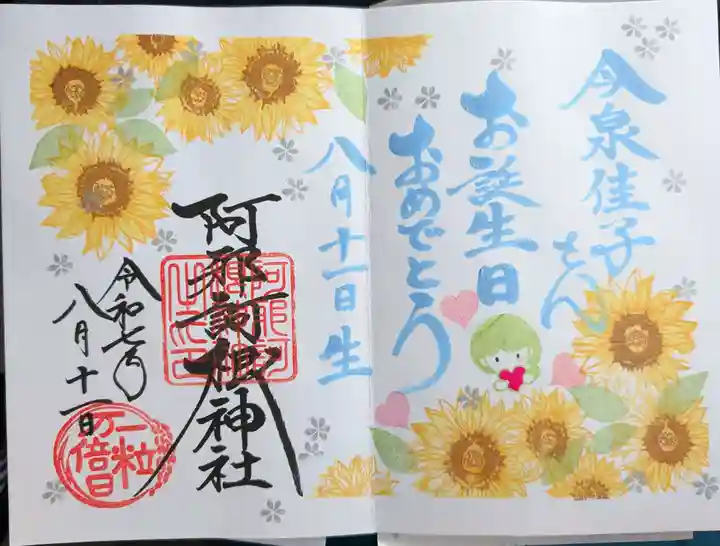 今泉佳子さん
お誕生日
おめでとう
八月十一日生
阿那訶根神社
令和七年
八月十一日
一粒万倍日